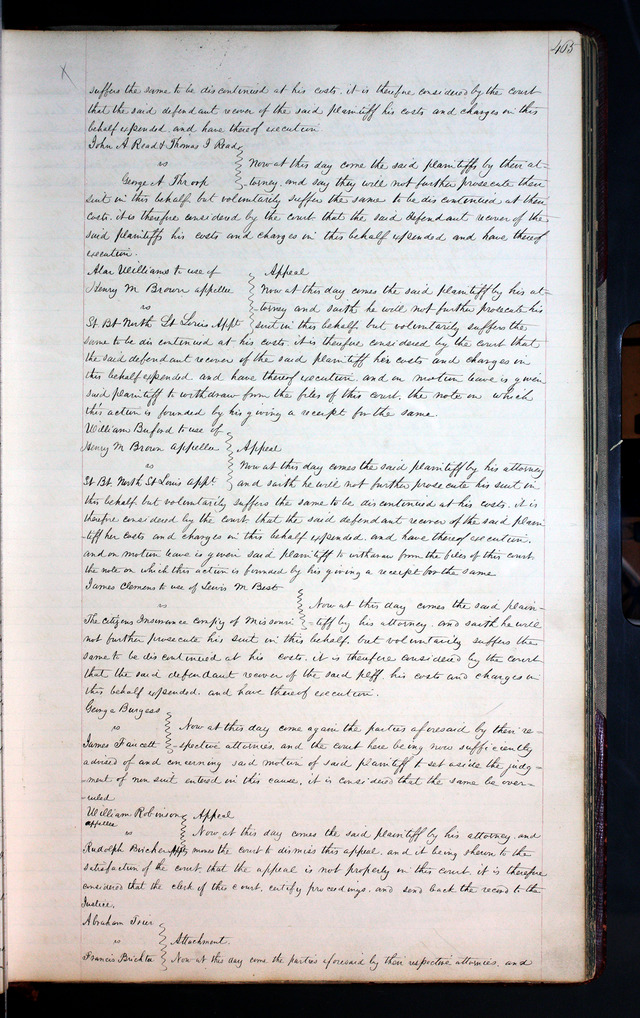 405
suffers the same to be discontinued at his costs. it is therefore considered by the court
that the said defendant recover of the said plaintiff his costs and charges in this
behalf expended. and have thereof execution
John A Read & Thomas I Read
vs Now at this day come the said plaintiffs by their at-
George A Throop torney. and say they will not further prosecute their
suit in this behalf but voluntarily suffer the same to be discontinued at their
costs. it is therefore considered by the court that the said defendant recover of the
said plaintiffs his costs and charges in this behalf expended and have thereof
execution.
Alar Williams to use of Appeal
Henry M Brown appellee Now at this day comes the said plaintiff by his at-
vs torney and saith he will not further prosecute his
St Bt North St Louis Appt suit in this behalf. but voluntarily suffers the
same to be discontinued at his costs. it is therefore considered by the court that
the said defendant recover of the said plaintiff her costs and charges in
this behalf expended and have thereof execution. and on motion leave is given
said plaintiff to withdraw from the files of this court. the note on which
this action is founded by his giving a receipt for the same
William Buford to use of
Henry M Brown appellee Appeal
vs Now at this day comes the said plaintiff by his attorney
St Bt. North St Louis appt and saith he will not further prosecute his suit in
this behalf. but voluntarily suffers the same to be discontinued at his costs. it is
therefore considered by the court that the said defendant recover of the said plain
-tiff her costs and charges in this behalf expended. and have thereof execution.
and on motion leave is given said plaintiff to withdraw from the files of this court.
the note on which this action is founded by his giving a receipt for the same
James Clemens to use of Lewis M Best
vs Now at this day comes the said plain-
The citizens Insurance compy of Missouri -tiff by his attorney. and saith he will
not further prosecute his suit in this behalf. but voluntarily suffers the
same to be discontinued at his costs. it is therefore considered by the court
that the said defendant recover of the said plff his costs and charges in
this behalf expended. and have thereof execution.
George Burgess
vs Now at this day come again the parties aforesaid by their re-
James Faucett -spective attornies. and the court here being now sufficiently
advised of and concerning said motion of said plaintiff to set aside the judg-
-ment of non suit entered in this cause, it is considered that the same be over-
-ruled
William Robinson Appeal
appellee
vs Now, at this day comes the said plaintiff by his attorney. and
Rudolph Bircher Appt moves the court to dismiss this appeal. and it being shewn to the
satisfaction of the court, that the appeal is not properly in this court. it is therefore
considered that the clerk of this court. certify proceedings. and send back the record to the
Justice.
Abraham Trier
vs Attachment.
Francis Brichta Now at this day come the parties aforesaid by their respective attornies. and